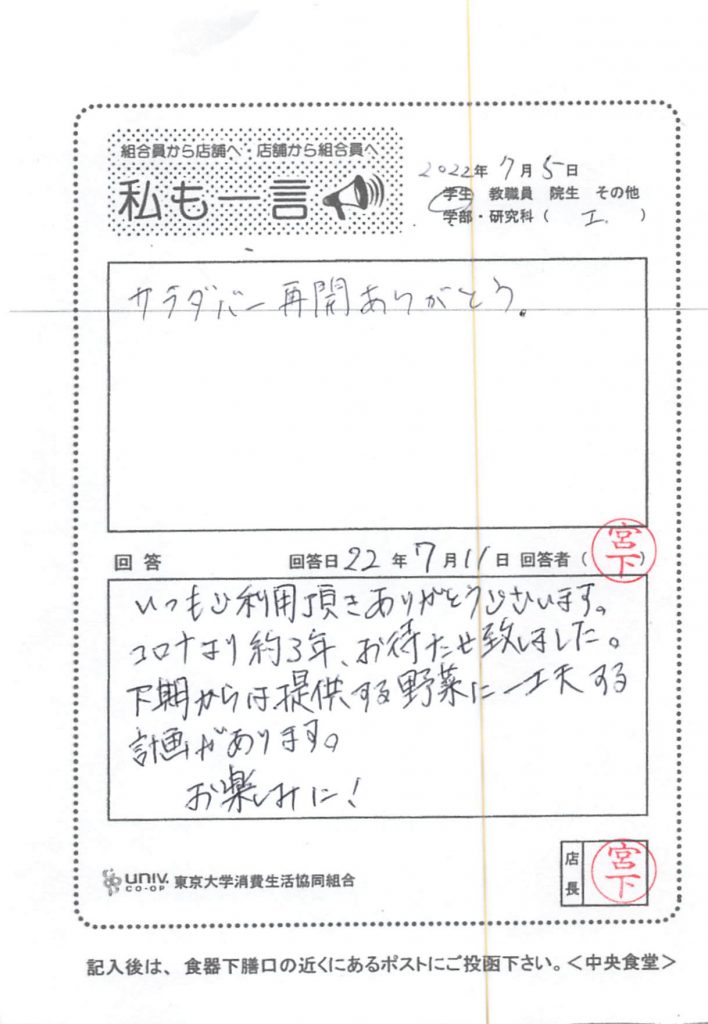 組合員から店舗へ・店舗から組合員へ
私も一言
2022年 7月 5日
学生 教職員 院生 その他
学部・研究科（ 工 ）
サラダバー再開ありがとう。
回答 回答日 22年 7月 11日 回答者（宮下）
いつもご利用頂きありがとうございます。
コロナより約3年、お待たせ致しました。
下期からは提供する野菜に一工夫する
計画があります。
お楽しみに！
UNIV. CO-OP 東京大学消費生活協同組合
店長 宮下
記入後は、食器下膳口の近くにあるポストにご投函下さい。＜中央食堂＞